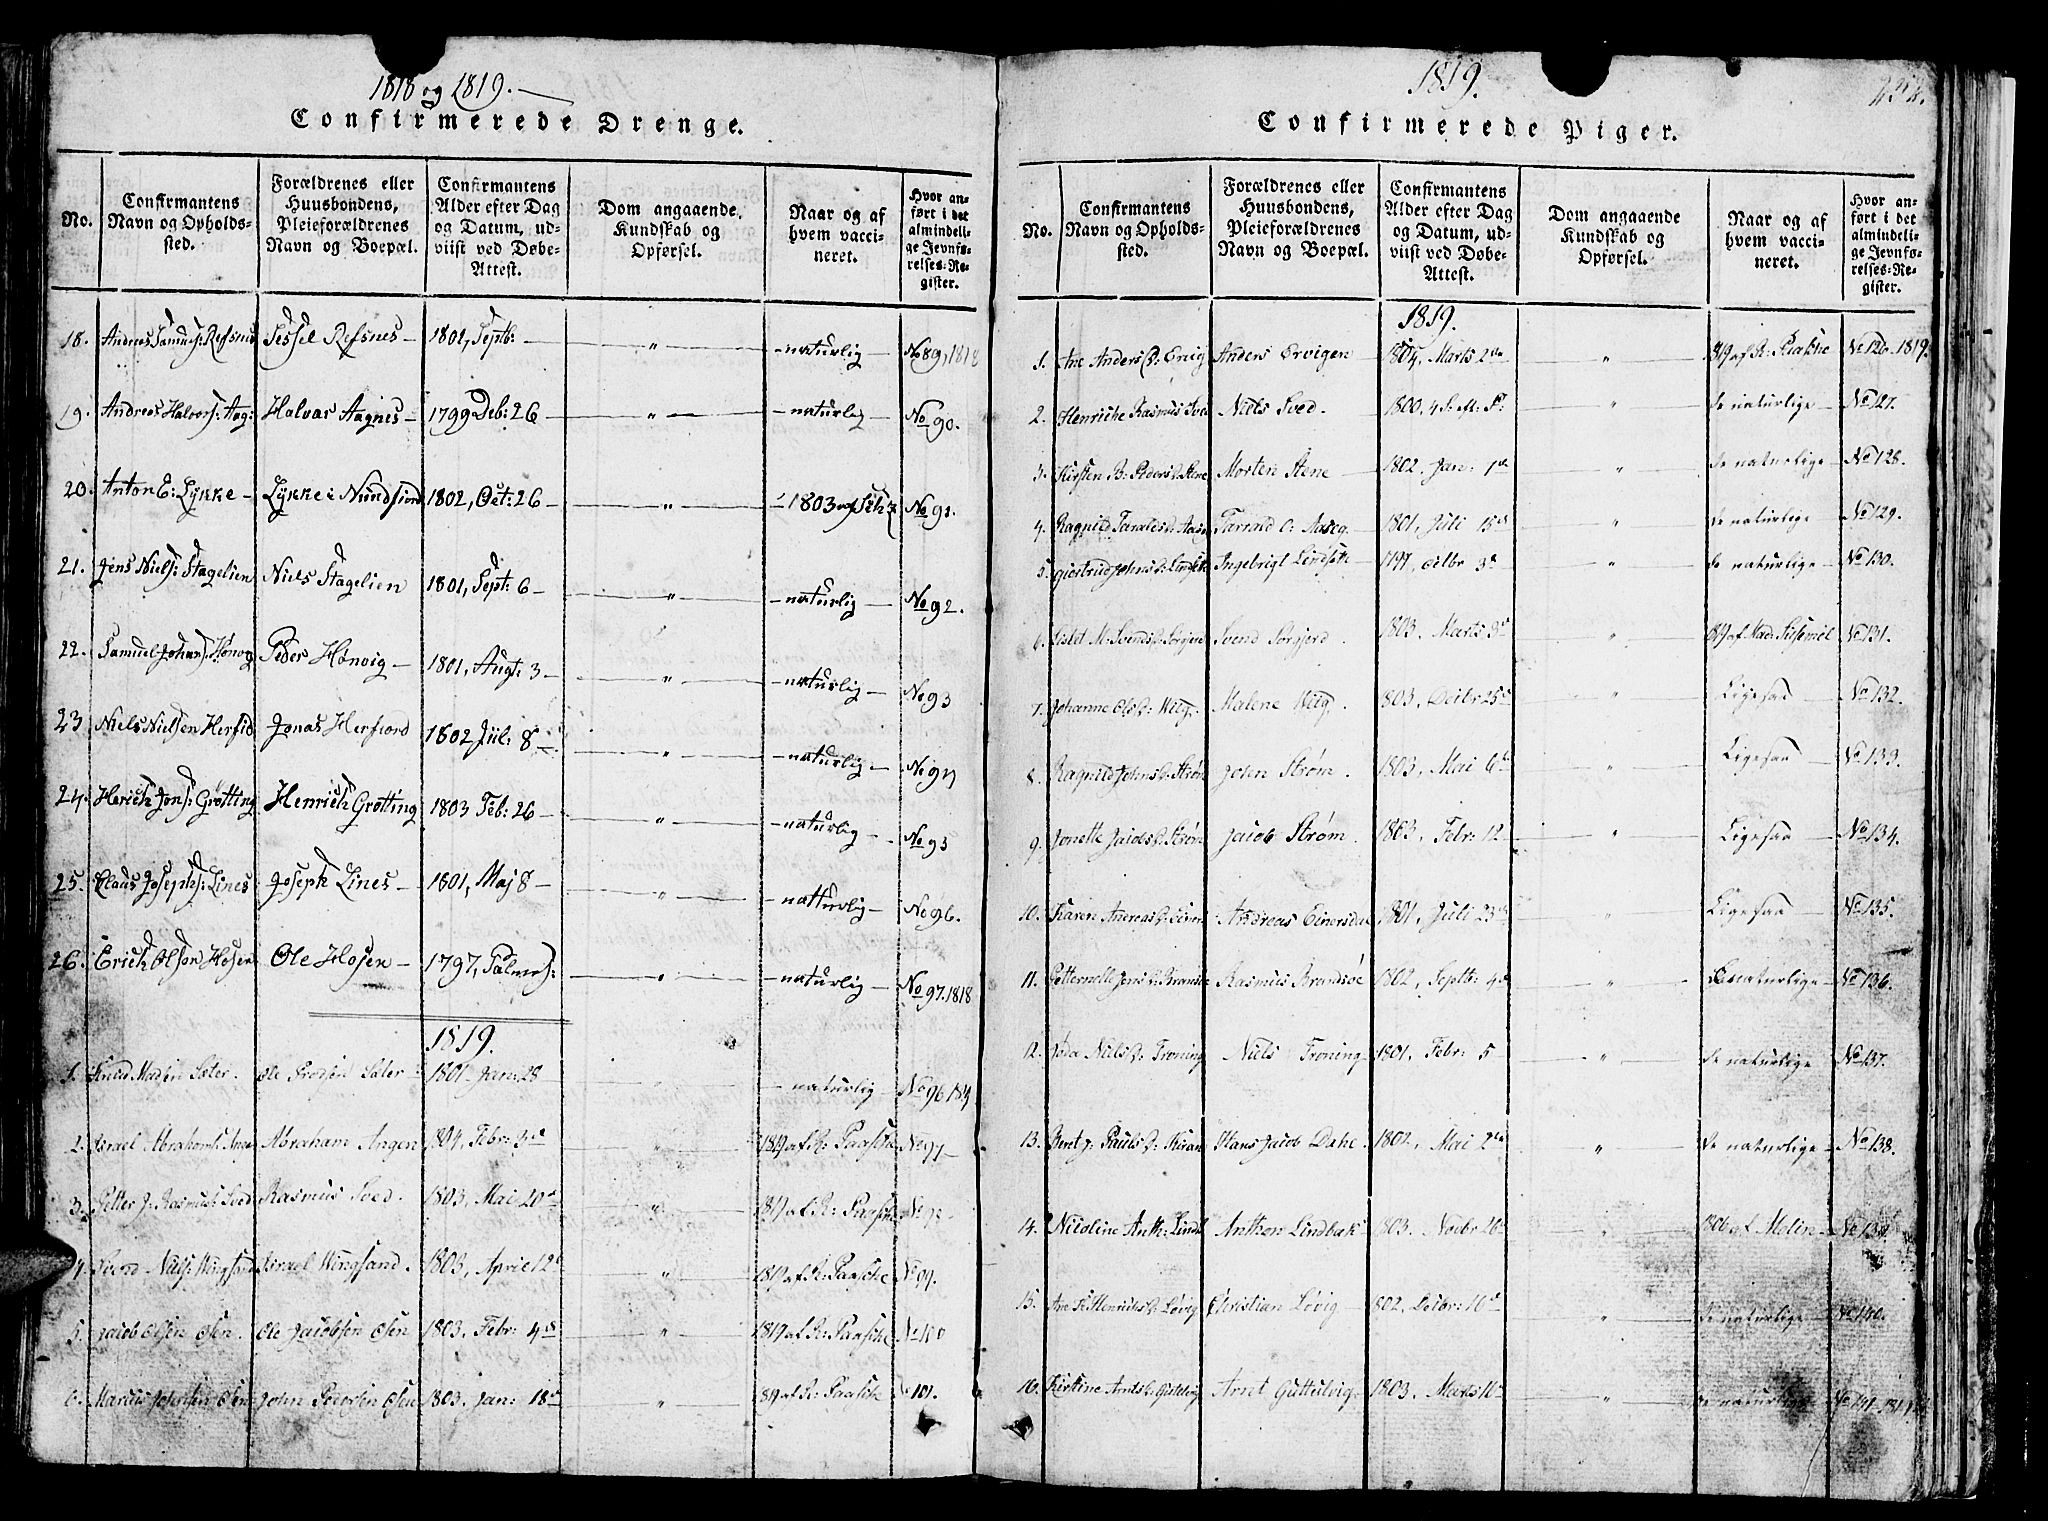 1818 og 1819.
Confirmerede Drenge.
No.
Confirmantens Navn og Opholds-sted.
Forældrenes eller Huusbondens, Pleieforældrenes Navn og Boepæl.
Confirmantens Alder efter Dag og Datum, ud-viist ved Døbe-Attest.
Dom angaaende Kundskab og Opførsel.
Naar og af hvem vacci-neret.
Hvor an-ført i det almindeli-ge Jevnfø-relses-Re-gister.
18. Refsnes Refsnes 1802, Septb: " naturlig No 89, 1818
19. Andreas Halvors: Aag: Halvar Aagnes 1799 Deb: 26 " naturlig No 90.
20. Anton E: Lykke Lykke i 1802, Oct: 26 " 1803 af No 91.
21. Jens Niels: Stagelien Niels Stagelien 1801, Sept: 6 " naturlig No 92.
22. Samuel Johans: Peder Hønvig 1801, Augt: 3 " naturlig No 93
23 Niels Nielsen Jonas Herfiord 1802 Jül: 8 " naturlig No 94
24. Jons: Grøtting Henrich Grøtting 1803 Feb: 26 " naturlig No 95
25. Claus Josephs: Lines Joseph Lines 1801, Maj 8 " natturlig No 96.
26. Erich Olsen Hosen Ole Hosen 1797, " naturlig No 97. 1818
1819.
1. Knud Sæter. Ole Sæter 1801. Jan: 28 " naturlig No 96 1819
2. Israel Abrahams: Abraham Angen 1804, Febr: " 1819 af R: Paasche No 97
3. Petter J: Rasmus: Sved Rasmus Sved. 1803, Mai 20d " 1819 af R: Paasche No 98
4. Svend Niels: Israel Wingsand. 1803, April 12 " 1819 af R: Paasche No 99.
5. Jacob Olsen Osen. Ole Jacobsen Osen 1803, Febr: 4d " 1819 af R: Paasche No 100
6. Marius Johnsen Osen John Osen 1803. Jan: 18d " 1819 af R: Paasche No 101.
1819.
Confirmerede Piger.
No.
Confirmantens Navn og Opholds-sted.
Forældrenes eller Huusbondens, Pleieforældrenes Navn og Boepæl.
Confirmantens Alder efter Dag og Datum, ud-viist ved Døbe-Attest.
Dom angaaende Kundskab og Opførsel.
Naar og af hvem vacci-neret.
Hvor an-ført i det almindeli-ge Jevnfø-relses-Re-gister.
1819.
1. Ane Anders D: Anders Ervigen 1804, Marts 2de " 1819 af R: Paasche No 126. 1819.
2. Henriche Rasmus Niels Sved. 1800, " de naturlige No 127.
3. Kirsten B: Peders D: Stene Morten Stene 1802, Jan: 1de " de naturlige No 128.
4. Ragnild 1801, Juli 15d " de naturlige No 129.
5. Giertrud Johns D: Ingebrigt 1797, 3d " de naturlige No 130.
6. M: Svends D: Svend Sørgjerd. 1803. Marts 3d " 1819 af Mad: No 131.
7. Johanne Ols D: Wiig. Malene Wiig. 1803, Decbr 25d " Ligesaa No 132.
8. Ragnild Johns D: Strøm John Strøm. 1803, Mai 6d " Ligesaa No 133.
9. Jonette Jacobs D: Strøm Jacob Strøm. 1803, Febr: 12 " Ligesaa No 134.
10. Karen Andreas D: Andreas Einersdal 1801, Juli 23d " Ligesaa No 135.
11. Petternelle Jens D: Rasmus Brandsøe 1802, Septb: 4d " De naturlige No 136.
12. Niels D: Froning Niels Froning 1801, Febr: 5 " de naturlige No 137.
13. Beret J: Pauls D: Hans Jacob Dahe 1802, Mai 2de " de naturlige No 138.
14. Nicoline Anth: Anthon Lindbak 1803. Novbr 26 " 1806 af Melin No 139.
15. Ane Henrichs D: Løvig Christian Løvig 1802, Decbr: 16d " de naturlige No 140.
16. Kirstine Arnts D: Arnt Guttelvig 1803. Marts 16 " de naturlige No 141